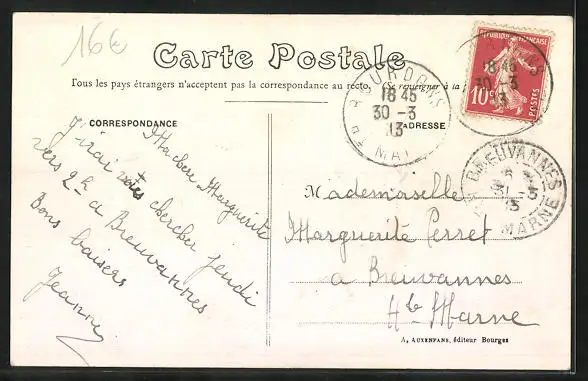 16€
Carte Postale
Tous les pays étrangers n'acceptent pas la correspondance au recto. (Se renseigner à la
CORRESPONDANCE
ADRESSE
Ma chère Marguerite
J'irai vous chercher jeudi
vers 2h a Breuvannes
Bons baisers
Jeanne
Mademoiselle
Marguerite Perret
a Breuvannes
Hte Marne
A. AUXENFANS, éditeur Bourges
REPUBLIQUE FRANÇAISE
10c
POSTES
18 45
30 -3
13
18 45
30 -3
13
BREUVANNES
31 -3
13
MARNE